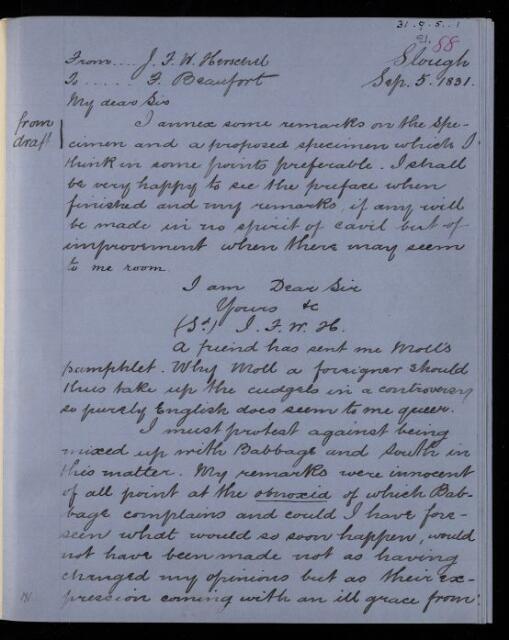 31.9.5.1
21.
88
From .... J. F. W. Herschel
Slough
To ..... F. Beaufort
Sep. 5. 1831.
My dear Sir
from
draft
I annex some remarks on the spe-
cimen and a proposed specimen which I
think in some points preferable. I shall
be very happy to see the preface when
finished and my remarks, if any will
be made in no spirit of cavil but of
improvement when there may seem
to me room.
I am Dear Sir
Yours &c
(Sd.) J. F. W. H.
A friend has sent me Moll's
pamphlet. Why Moll a foreigner should
thus take up the cudgels in a controversy
so purely English does seem to me queer.
I must protest against being
mixed up with Babbage and South in
this matter. My remarks were innocent
of all point at the obnoxia of which Bab-
bage complains and could I have fore-
seen what would so soon happen, would
not have been made not as having
changed my opinions but as their ex-
pression coming with an ill grace from